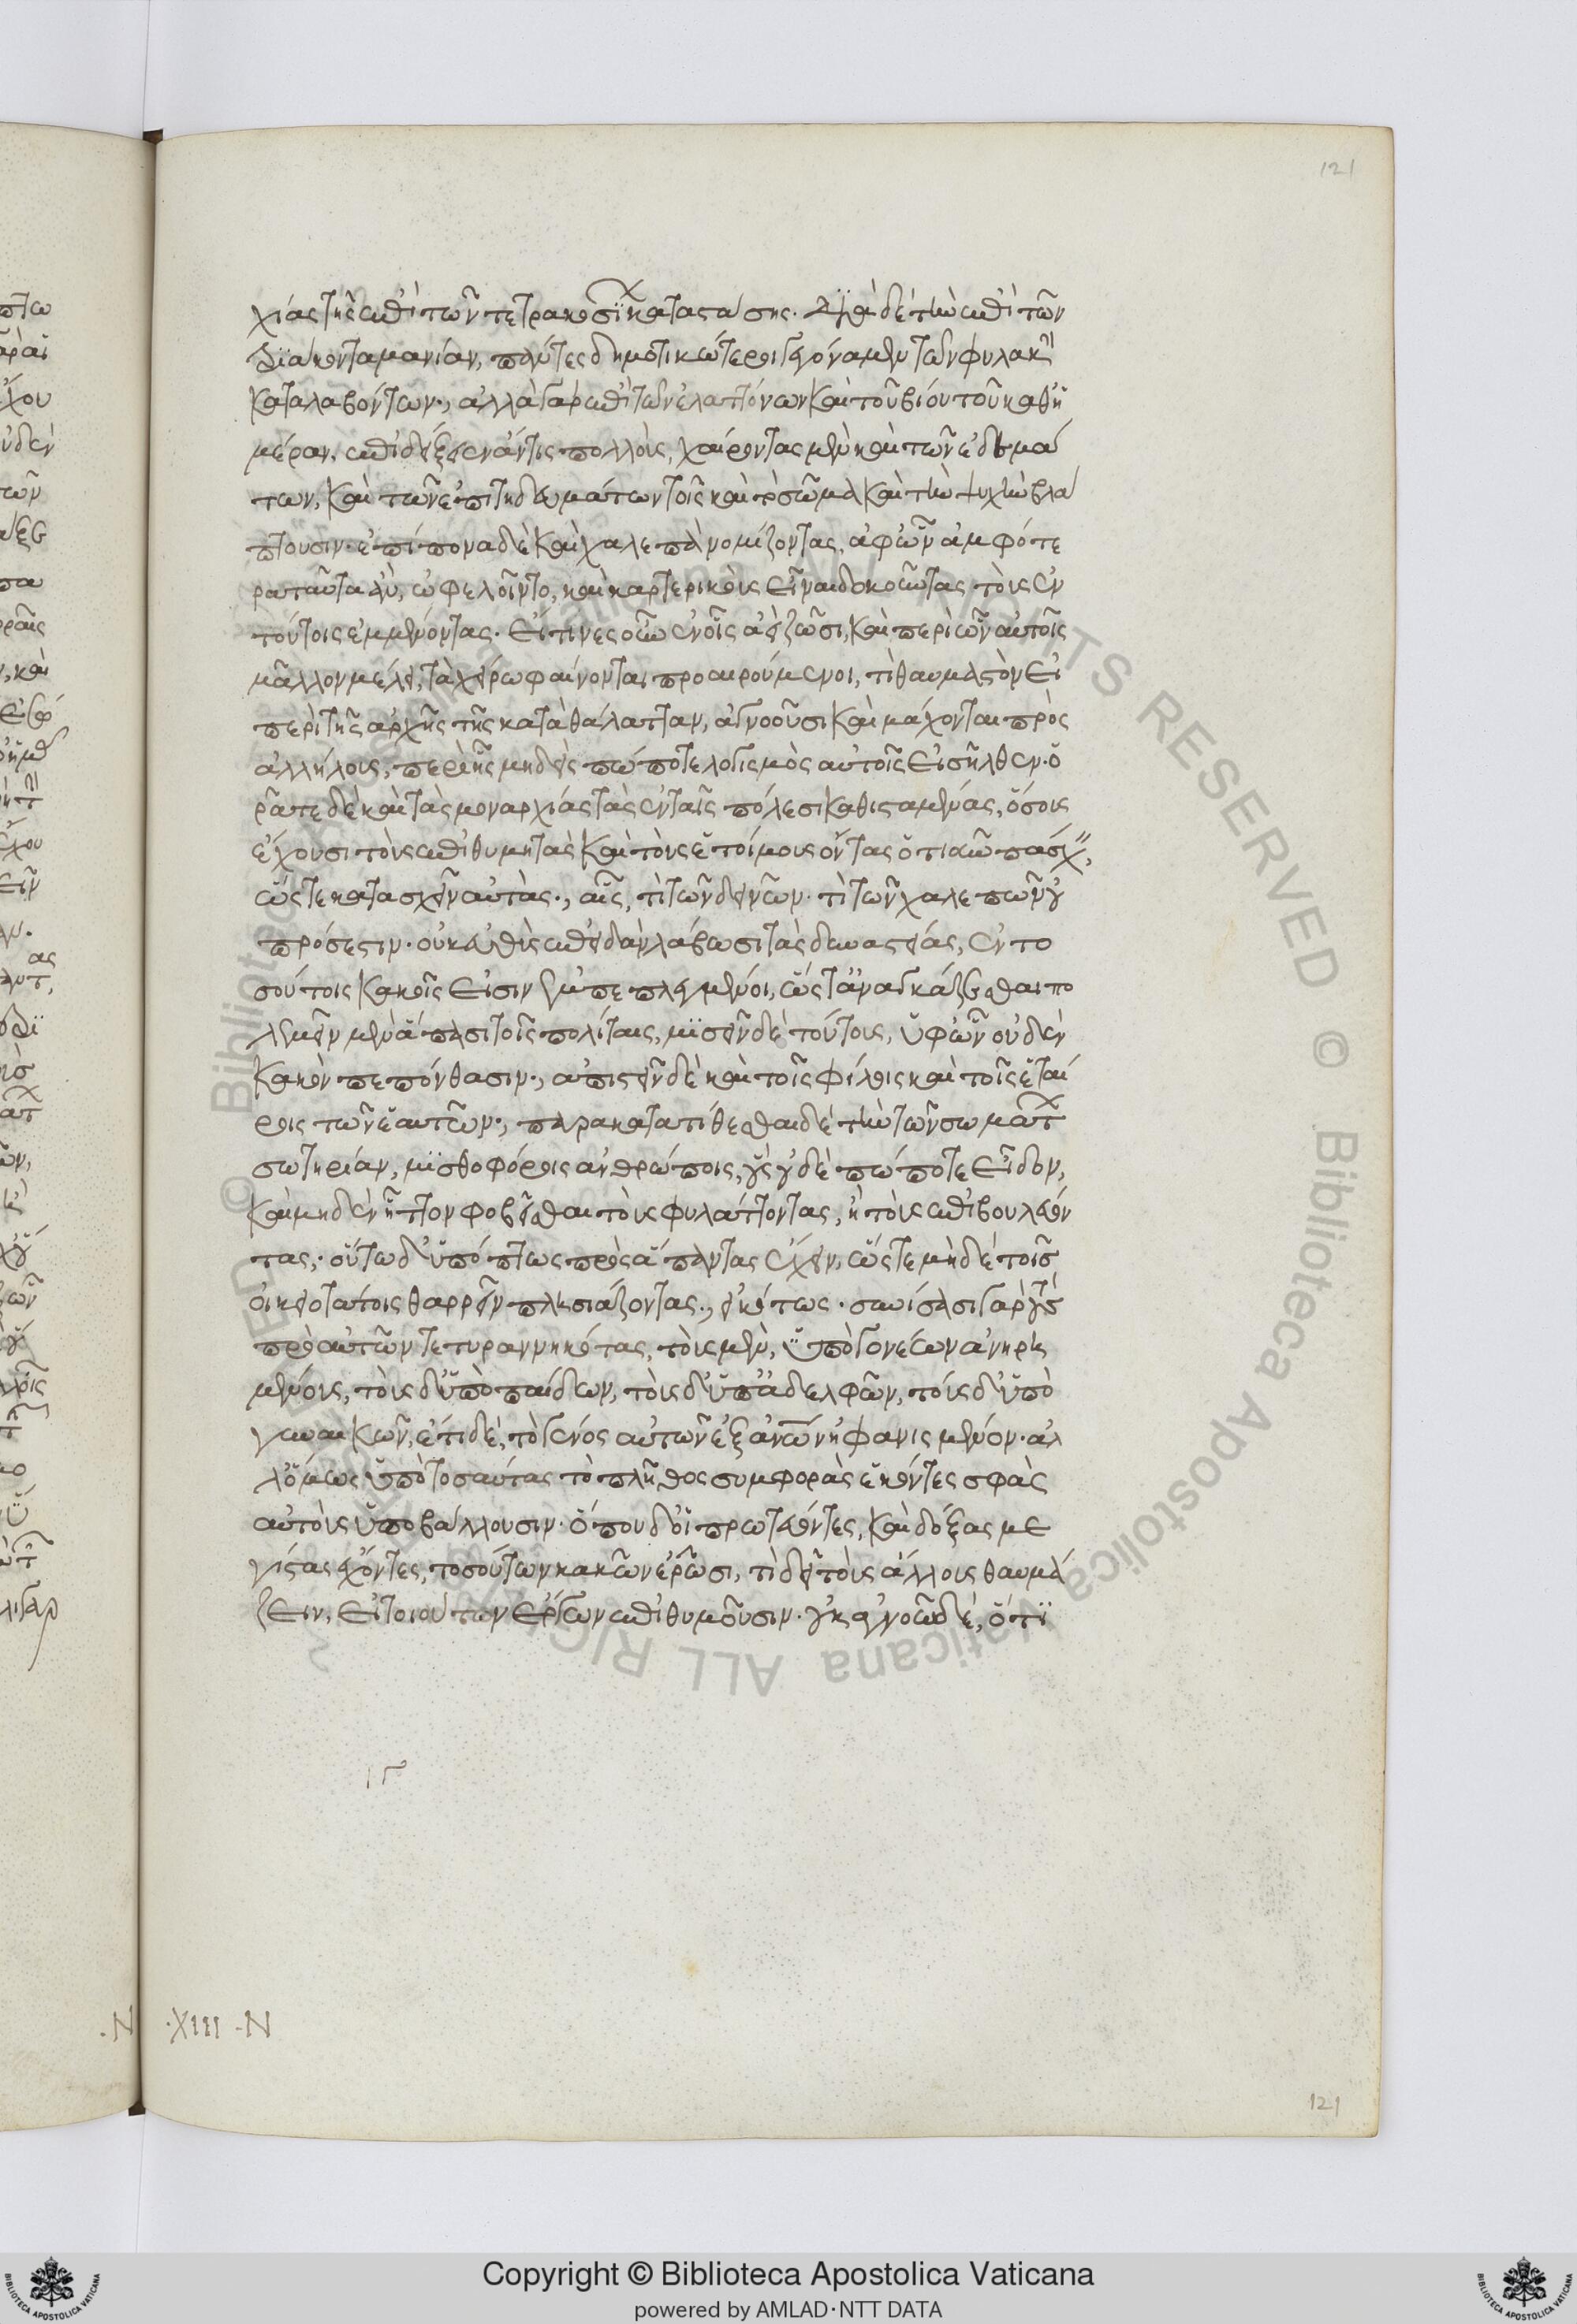 121
χίας τῆς ἐπὶ τῶν τετρακοσίων καταστάσης. διὰ δὲ τὴν ἐπὶ τῶν
τριάκοντα μανίαν, πάντες δημοτικώτεροι γεγόναμεν τῶν φυλακὴν
καταλαβόντων., ἀλλὰ γὰρ ἐπὶ τῶν ἐλαττόνων καὶ τοῦ βίου τοῦ καθ' ἡ
μέραν, ἐπιδείξειεν ἄν τις πολλοὺς, χαίροντας μὲν καὶ τῶν ἐδεσμά
των, καὶ τῶν ἐπιτηδευμάτων τοῖς καὶ τὸ σῶμα καὶ τὴν ψυχὴν βλά
πτουσιν· ἐπίπονα δὲ καὶ χαλεπὰ νομίζοντας, ἀφ' ὧν ἀμφότε
ρα ταῦτα ἂν, ὠφελοῖντο, καὶ καρτερικοὺς εἶναι δοκοῦντας τοὺς ἐν
τούτοις ἐμμένοντας. εἴ τινες οὖν ἐν οἷς ἀεὶ ζῶσι, καὶ περὶ ὧν αὐτοῖς
μᾶλλον μέλει, τὰ χείρω φαίνονται προαιρούμενοι, τί θαυμαστὸν εἰ
περὶ τῆς ἀρχῆς τῆς κατὰ θάλατταν, ἀγνοοῦσι καὶ μάχονται πρὸς
ἀλλήλους, περὶ ἧς μηδεὶς πώποτε λογισμὸς αὐτοῖς εἰσῆλθεν. ὁ
ρᾶτε δὲ καὶ τὰς μοναρχίας τὰς ἐν ταῖς πόλεσι καθισταμένας, ὅσους
ἔχουσι τοὺς ἐπιθυμητὰς καὶ τοὺς ἑτοίμους ὄντας ὁτιοῦν πάσχειν,
ὥστε κατασχεῖν αὐτὰς., αἷς, τί τῶν δεινῶν. τί τῶν χαλεπῶν οὐ
πρόσεστιν. οὐκ εὐθὺς ἐπειδὰν λάβωσι τὰς δυναστείας, ἐν το
σούτοις κακοῖς εἰσὶν ἐμπεπλεγμένοι, ὥστ' ἀναγκάζεσθαι πο
λεμεῖν μὲν ἅπασι τοῖς πολίταις, μισεῖν δὲ τούτους, ὑφ' ὧν οὐδὲν
κακὸν πεπόνθασιν., ἀπιστεῖν δὲ καὶ τοῖς φίλοις καὶ τοῖς ἑταί
ροις τῶν ἑαυτῶν., παρακατατίθεσθαι δὲ τὴν τῶν σωμάτων
σωτηρίαν, μισθοφόροις ἀνθρώποις, οὓς οὐδὲ πώποτε εἶδον,
καὶ μηδὲν ἧττον φοβεῖσθαι τοὺς φυλάττοντας, ἢ τοὺς ἐπιβουλεύον
τας,. οὕτω δ' ὑπόπτως πρὸς ἅπαντας ἔχειν, ὥστε μηδὲ τοῖς
οἰκειοτάτοις θαρρεῖν πλησιάζοντας., εἰκότως. συνίσασι γὰρ τοὺς
πρὸ αὐτῶν τετυραννηκότας, τοὺς μὲν, ὑπὸ γονέων ἀνῃρη
μένους, τοὺς δ' ὑπὸ παίδων, τοὺς δ' ὑπ' ἀδελφῶν, τοὺς δ' ὑπὸ
γυναικῶν, ἔτι δὲ, τὸ γένος αὐτῶν ἐξ ἀνθρώπων ἠφανισμένον. ἀλ
λ' ὅμως ὑπὸ τοσαύτας τὸ πλῆθος συμφορὰς ἑκόντες σφᾶς
αὐτοὺς ὑποβάλλουσιν. ὅπου δ' οἱ πρωτεύοντες, καὶ δόξας με
γίστας ἔχοντες, τοσούτων κακῶν ἐρῶσι, τί δεῖ τοὺς ἄλλους θαυμά
ζειν, εἰ τοιούτων ἑτέρων ἐπιθυμοῦσιν. οὐκ ἀγνοῶ δὲ, ὅτι
·XIII -N
121
Copyright © Biblioteca Apostolica Vaticana
powered by AMLAD·NTT DATA